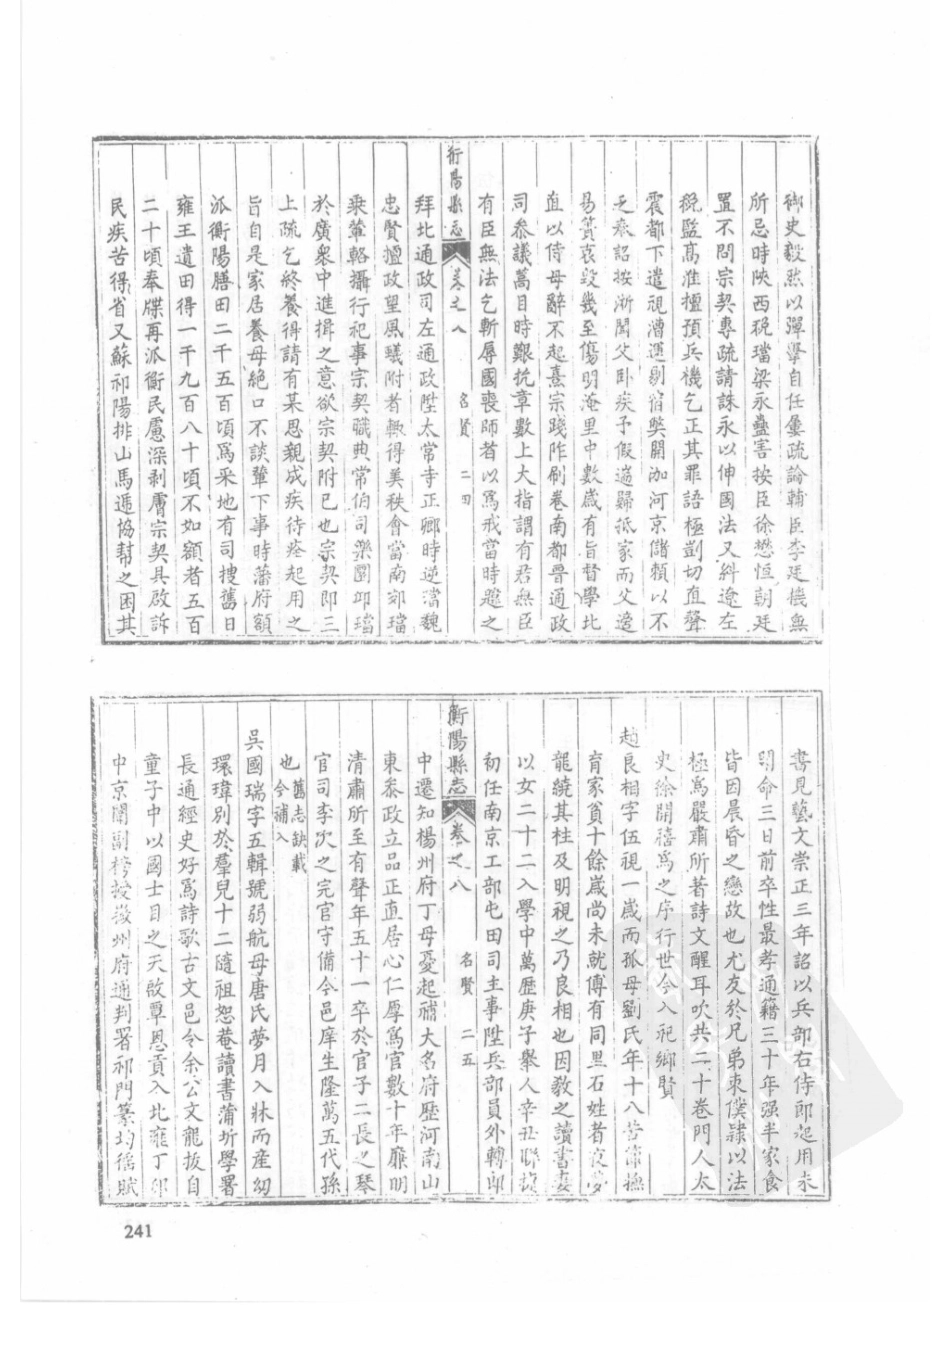 御史毅然以彈擊自任彙疏論輔臣李廷機無
所忌時陝西稅璫梁永蠱害按臣徐懋恒朝廷
置不問宗契專疏請誅永以伸國法又糾遼左
稅監高淮擅預兵機乞正其罪語極剴切直聲
震都下遣視漕運剔宿獘開泇河京儲賴以不
乏奉詔按浙聞父臥疾予假遄歸抵家而父逝
易簀哀毀幾至傷明淹里中數歲有旨督學北
直以侍母辭不起熹宗踐阼刷卷南都晉通政
司叅議蒿目時艱抗章數上大指謂有君無臣
有臣無法乞斬辱國喪師者以爲戒當時韙之
衡陽縣志 卷之八 名賢 二四
拜北通政司左通政陞太常寺正卿時逆璫魏
忠賢擅政望風蟻附者輙得美秩會當南郊璫
乘輦輅攝行祀事宗契職典常伯司樂罽卭璫
於廣衆中進揖之意欲宗契附已也宗契卽三
上疏乞終養得請有某思親成疾待痊起用之
旨自是家居養母絕口不談輦下事時藩府額
派衡陽膳田二千五百頃爲采地有司捜舊日
雍王遺田得一千九百八十頃不如額者五百
二十頃奉牒再派衡民慮深剥膚宗契具啟訴
民疾苦得省又蘇祁陽排山馬遞協幫之困其
書見藝文崇正三年詔以兵部右侍郎起用未
明命三日前卒性最孝通籍三十年强半家食
皆因晨昏之戀故也尤友於兄弟束僕隷以法
極爲嚴肅所著詩文醒耳吹共二十卷門人太
史徐開禧爲之序行世今入祀鄉賢
趙良相字伍視一歲而孤母劉氏年十八苦節撫
育家貧十餘歲尚未就傅有同里石姓者夜夢
龍繞其柱及明視之乃良相也因教之讀書妻
以女二十二入學中萬歷庚子舉人辛丑聯捷
初任南京工部屯田司主事陞兵部員外轉郎
衡陽縣志 卷之八 名賢 二五
中遷知楊州府丁母憂起補大名府歷河南山
東叅政立品正直居心仁厚爲官數十年亷明
清肅所至有聲年五十一卒於官子二長之琴
官司李次之完官守備今邑庠生隆萬五代孫
也 舊志缺載今補入
吳國瑞字五輯號弱航母唐氏夢月入牀而產幼
環瑋別於羣兒十二隨祖恕菴讀書蒲圻學署
長通經史好爲詩歌古文邑令余公文龍拔自
童子中以國士目之天啟覃恩貢入北雍丁卯
中京闈副榜授徽州府通判署祁門篆均徭賦
241